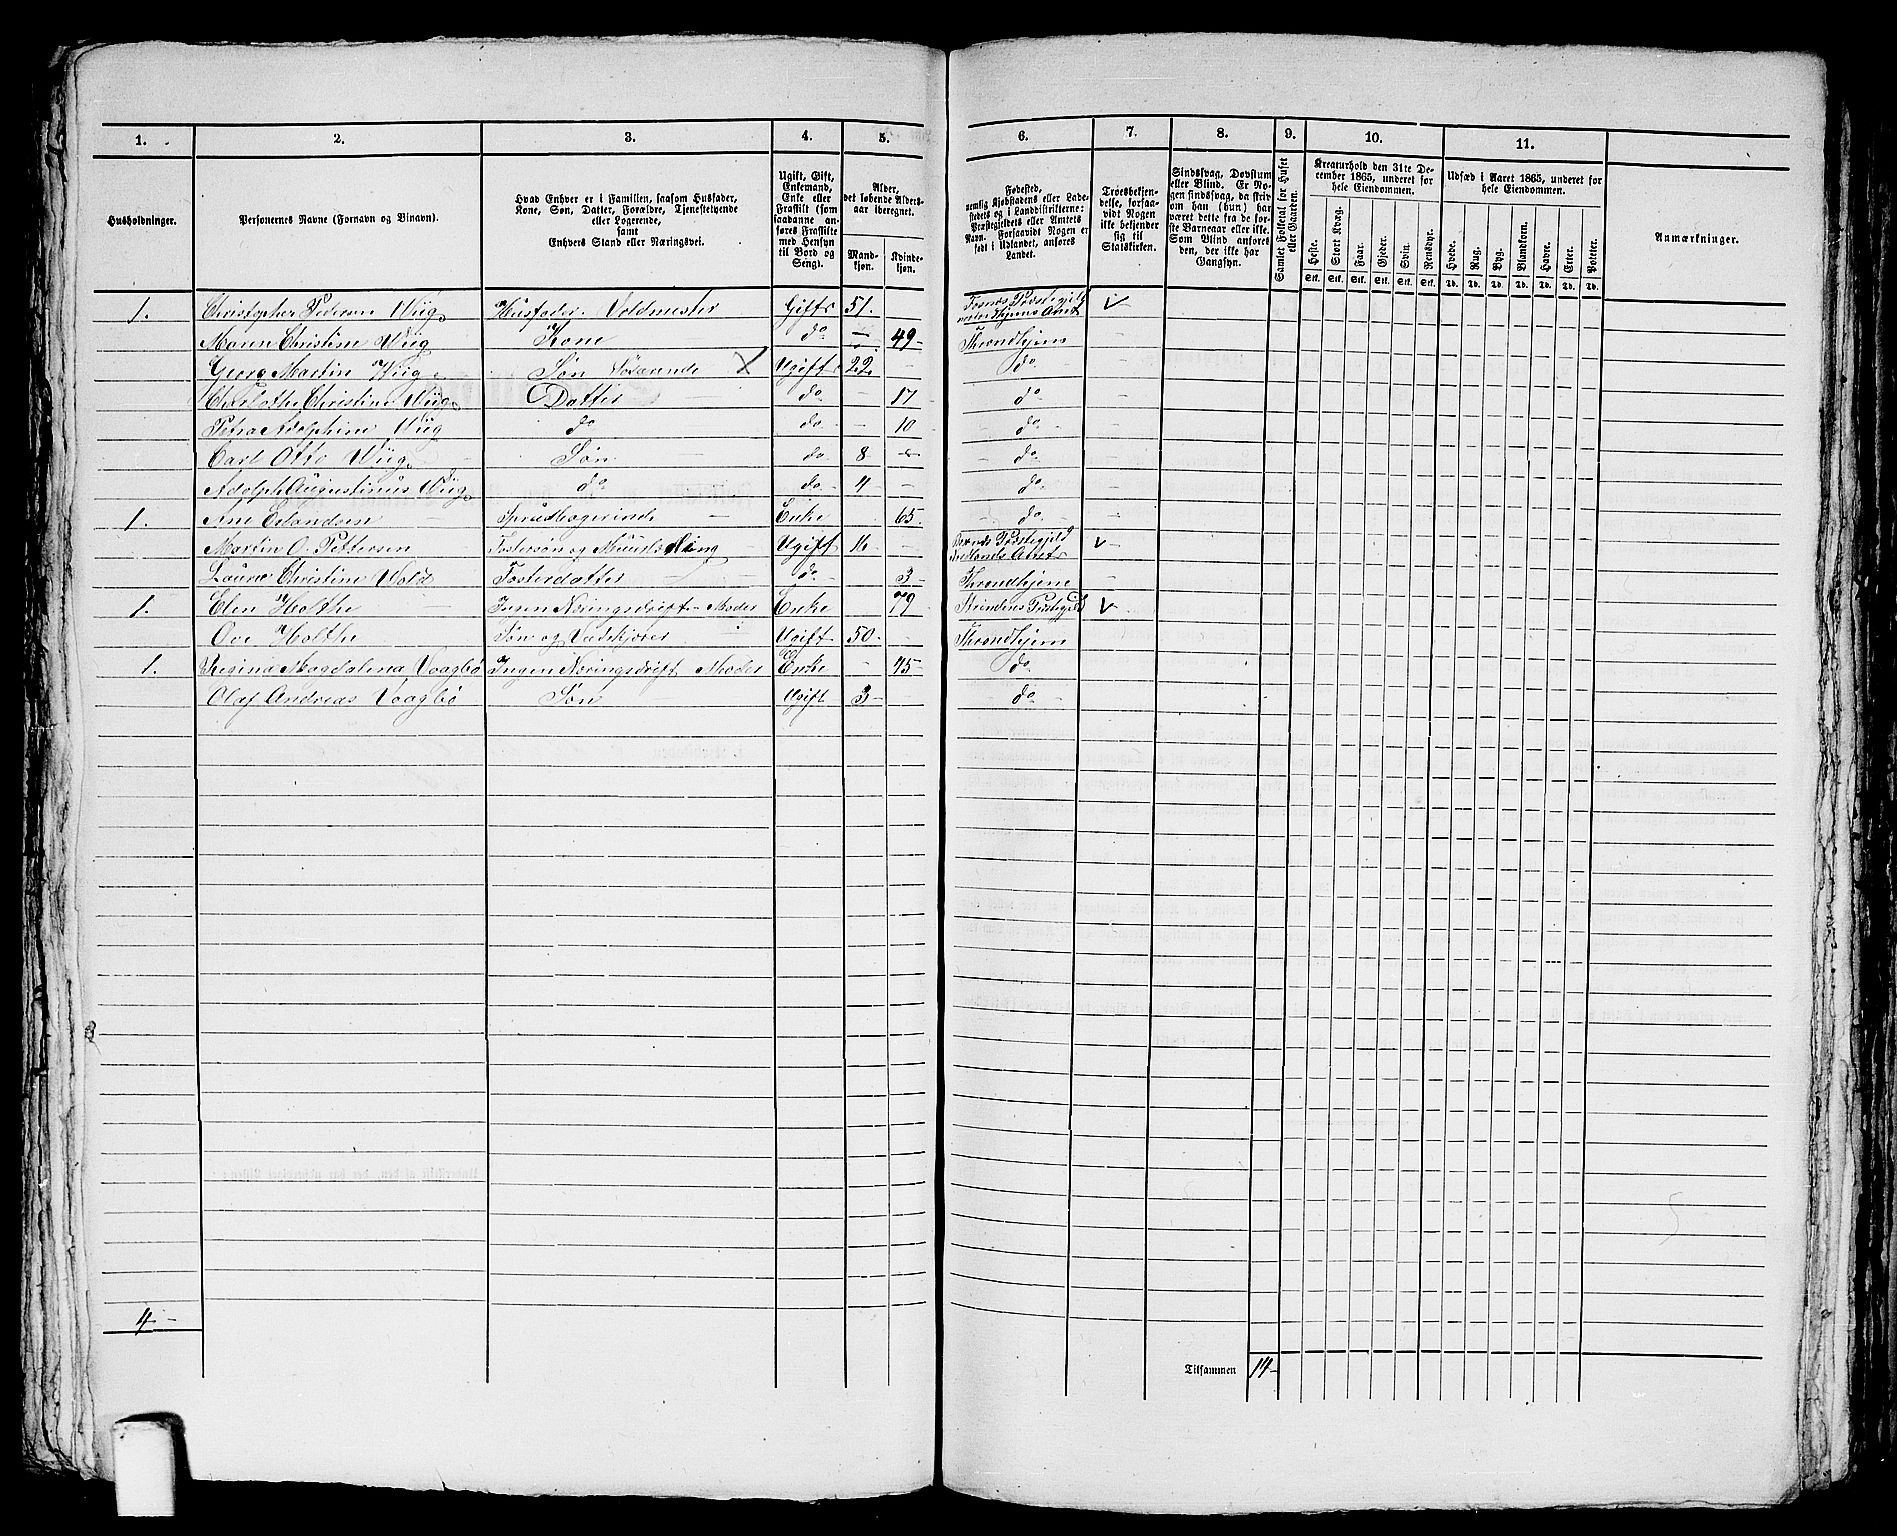 1. 2. 3. 4. 5. 6. 7. 8. 9. 10. 11.
Husholdninger.
Personernes Navne (Fornavn og Binavn).
Hvad Enhver er i Familien, saasom Husfader,
Kone, Søn, Datter, Forældre, Tjenestetyende
eller Logerende,
samt
Enhvers Stand eller Næringsvei.
Ugift, Gift,
Enkemand,
Enke eller
Fraskilt (som
saadanne an-
føres Fraskilte
med Hensyn
til Bord og
Seng).
Alder,
det løbende Alders-
aar iberegnet.
Mand-
kjøn.
Kvinde-
kjøn.
Fødested,
nemlig Kjøbstadens eller Lade-
stedets og i Landdistrikterne:
Præstegjeldets eller Amtets
Navn. Forsaavidt Nogen er
født i Udlandet, anføres
Landet.
Troesbekjen-
delse, forsaa-
vidt Nogen
ikke bekjender
sig til
Statskirken.
Sindssvag, Døvstum
eller Blind. Er No-
gen sindssvag, da skriv
om han (hun) har
været dette fra de før-
ste Barneaar eller ikke.
Som Blind anføres
den, der ikke har
Gangsyn.
Samlet Folketal for Huset
eller Gaarden.
Kreaturhold den 31te De-
cember 1865, underet for
hele Eiendommen.
Heste. Stort Kvæg. Faar. Gjeder. Svin. Rensdyr.
Stk. Stk. Stk. Stk. Stk. Stk.
Udsæd i Aaret 1865, underet for
hele Eiendommen.
Hvede. Rug. Byg. Blandkorn. Havre. Erter. Poteter.
Td. Td. Td. Td. Td. Td. Td.
Anmærkninger.
1. Christopher Pedersen Wiig Husfader. Voldmester Gift 51. Fosnes Præstegjeld
Amt
Maren Christine Wiig Kone do 49 Throndhjem
Georg Martin Wiig Søn Søfarende Ugift 22 do
Charlothe Christine Wiig Datter do 17 do
Petra Adolphine Wiig do do 10 do
Carl Otto Wiig Søn do 8 do
Adolph Augustinus Wiig do do 4 do
1. Ane Erlandsen Enke 65 do
Martin O. Pettersen Fostersøn og Ugift 16 Præstegjeld
Nordlands Amt
Laura Christine Wold Fosterdatter do 3 Throndhjem
1. Elen Holthe Ingen Næringsdrift Moder Enke 79 Strindens Præstegjeld
Ove Holthe Søn og Vedskjører Ugift 50 Throndhjem
1. Regina Magdalena Vaagbø Ingen Næringsdrift Moder Enke 45 do
Olaf Andreas Vaagbø Søn Ugift 3 do
4
Tilsammen 14